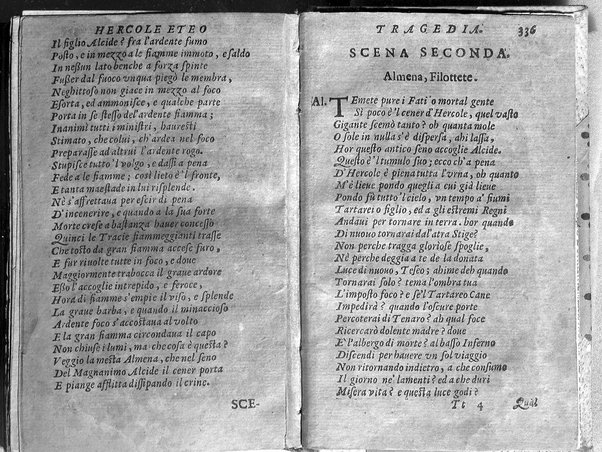 HERCOLE ETEO
Il figlio Alcide? fra l'ardente fumo
Posto, e in mezzo a le fiamme immoto, e saldo
In neſſun lato benche a forza ſpinte
Fuſſer dal fuoco vnqua piegò le membra,
Neghittoso non giace in mezzo al foco
Eſorta, ed ammoniſce, e qualche parte
Porta in se ſteſſo del'ardente fiamma;
Inanimi tutti i miniſtri, haureſti
Stimato, che colui, ch'ardea nel foco
Preparaſſe ad altrui l'ardente rogo.
Stupiſce tutto 'l volgo, e daſſi a pena
Fede a le fiamme; così lieto è'l fronte,
E tanta maeſtade in lui riſplende.
Nè s'affrettaua per eſcir di pena
D'incenerire, e quando a la ſua forte
Morte creſe a baſtanza hauer conceſſo
Quinci le Tracie fiammeggianti traſſe
Che toſto da gran fiamma acceſe furo,
E fur riuolte tutte in foco, e doue
Maggiormente trabocca il graue ardore
Eſſo l'accoglie intrepido, e feroce,
Hora di fiamme s'empie il viſo, e ſplende
La graue barba, e quando il minaccioſo
Ardente foco s'accoſtaua al volto
E la gran fiamma circondaua il capo
Non chiuſe i lumi, ma che coſa è queſta?
Veggio la meſta Almena, che nel ſeno
Del Magnanimo Alcide il cener porta
E piange afflitta diſſipando il crine.
SCE-
TRAGEDIA. 336
SCENA SECONDA.
Almena, Filottete.
Al. TEmete pure i Fati ò mortal gente
Sì poco è 'l cener d'Hercole, quel vaſto
Gigante ſcemò tanto? oh quanta mole
O ſole in nulla s'è diſperſa, ahi laſſa,
Hor queſto antico ſeno accoglie Alcide.
Queſto è'l tumulo ſuo; ecco ch'a pena
D'Hercole è piena tutta l'vrna, oh quanto
M'è lieue pondo quegli a cui già lieue
Pondo fù tutto 'l cielo, vn tempo a' fiumi
Tartarei o figlio, ed a gli eſtremi Regni
Andaui per tornare in terra. hor quando
Di nuouo tornarai dal'atra Stige?
Non perche tragga glorioſe ſpoglie,
Nè perche deggia a te de la donata
Luce di nuouo, Teſeo; ahime deh quando
Tornarai ſolo? tema l'ombra tua
L'impoſto foco? e ſè'l Tartareo Cane
Impedirà? quando l'oſcure porte
Percoterai di Tenaro? ah qual foce
Ricercarò dolente madre? doue
E' l'albergo di morte? al baſſo Inferno
Diſcendi per hauere vn ſol viaggio
Non ritornando indietro, a che conſumo
Il giorno ne' lamenti? ed a che duri
Miſera vita? e queſta luce godi?
Tt 4 Qual